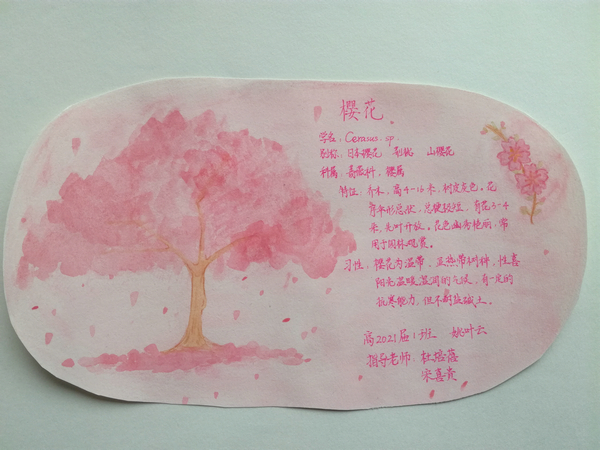 樱花
学名：Cerasus.sp.
别称：日本樱花 荆桃 山樱花
科属：蔷薇科，樱属
特征：乔木，高4-16米，树皮灰色。花
序伞形总状，总梗极短，有花3-4
朵，先叶开放。花色幽秀艳丽，常
用于园林观赏。
习性：樱花为温带、亚热带树种，性喜
阳光温暖湿润的气候，有一定的
抗寒能力，但不耐盐碱土。
高2021届1班 姚叶云
指导老师：杜
宋喜贵